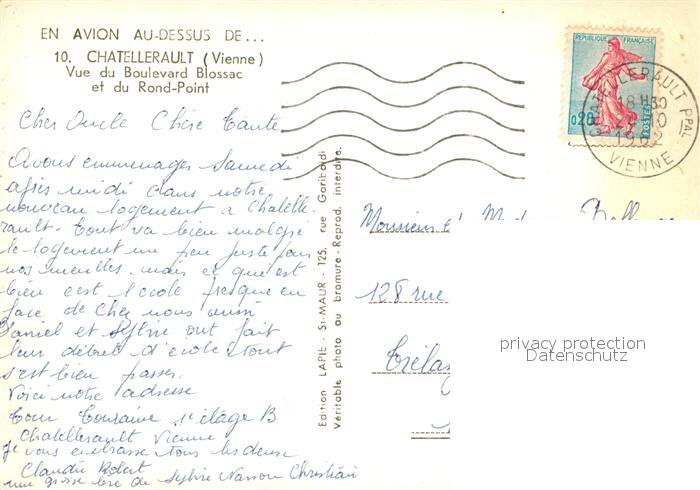 EN AVION AU-DESSUS DE...
10. CHATELLERAULT (Vienne)
Vue du Boulevard Blossac
et du Rond-Point
Cher Oncle Chère Tante
Avons emmenager Samedi
après midi dans notre
nouveau logement a Chatelle-
rault. Tout va bien malgré
le logement un peu juste pour
nos meubles. mais ce qui est
bien c'est l'école presque en
face de chez nous aussi
Daniel et Sylvie ont fait
leur début d'école tout
s'est bien passer.
Voici notre adresse
Tour Touraine 1er étage B
Chatellerault Vienne
Je vous embrasse tous les deux
Claudie Robert
une grosse bise de Sylvie Christian
Edition LAPIE - St-MAUR - 125, rue Garibaldi
Véritable photo au bromure - Reprod. interdite.
REPUBLIQUE FRANÇAISE
0,20
POSTES
CHATELLERAULT PPAL
18H30
1962
VIENNE
Monsieur et
128 rue
Trélaz
privacy protection
Datenschutz